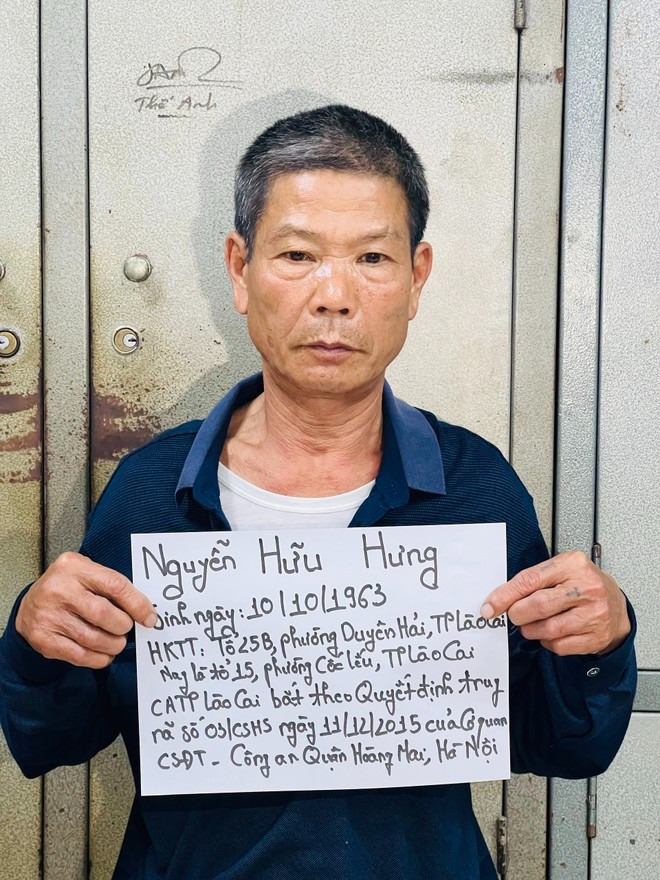 Thế Anh
Nguyễn Hữu Hưng
Sinh ngày: 10/10/1963
HKTT: Tổ 25B, phường Duyên Hải, TP Lào Cai
Nay là tổ 15, phường Cốc Lếu, TP Lào Cai
CATP Lào Cai bắt theo Quyết định truy
nã số 03/CSHS ngày 11/12/2015 của Cơ quan
CSĐT - Công an Quận Hoàng Mai, Hà Nội